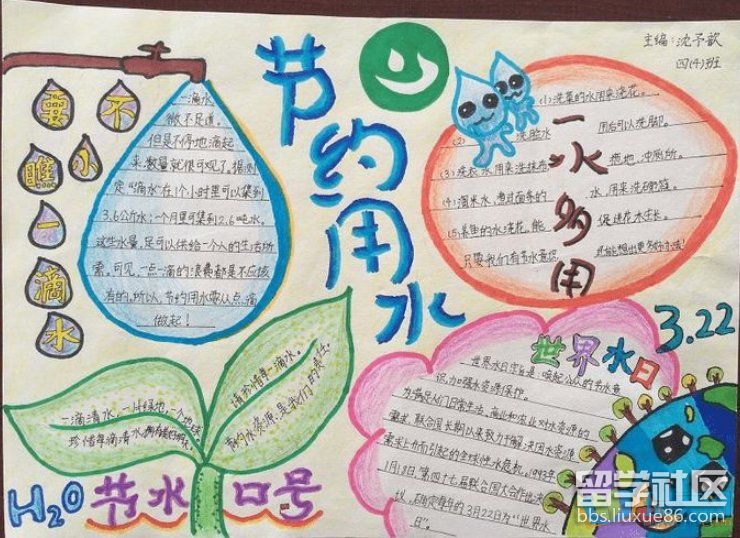 主编:沈予歆
四(4)班
节约用水
不
要
小
瞧
一
滴
水
一滴水
微不足道。
但是不停地滴起
来,数量就很可观了。据测
定"滴水"在1个小时里可以集到
3.6公斤水;一个月里可集到2.6吨水。
这些水量,足可以供给一个人的生活所
需。可见,一点一滴的浪费都是不应该
有的。所以,节约用水要从点滴
做起!
一水多用
(1)洗菜的水用来浇花。
(2) 洗脸水 用后可以洗脚。
(3)洗衣水用来洗拖布 拖地,冲厕所。
(4)淘米水,煮过面条的 水,用来洗碗筷。
(5)养鱼的水浇花,能 促进花木生长。
只要我们有节水意识, 还能想出更多好办法!
一滴清水,一片绿地,一个地球。
珍惜每滴清水
请珍惜每一滴水。
节约水资源,是我们的责任。
H2O 节水口号
世界水日
3.22
世界水日宗旨是:唤起公众的节水意
识,加强水资源保护。
为满足人们日常生活、商业和农业对水资源的
需求,联合国长期以来致力于解决因水资源
需求上升而引起的全球性水危机。1993年
1月18日,第四十七届联合国大会作出决
议,确定每年的3月22日为"世界水
日"。
留学社区
bbs.liuxue86.com